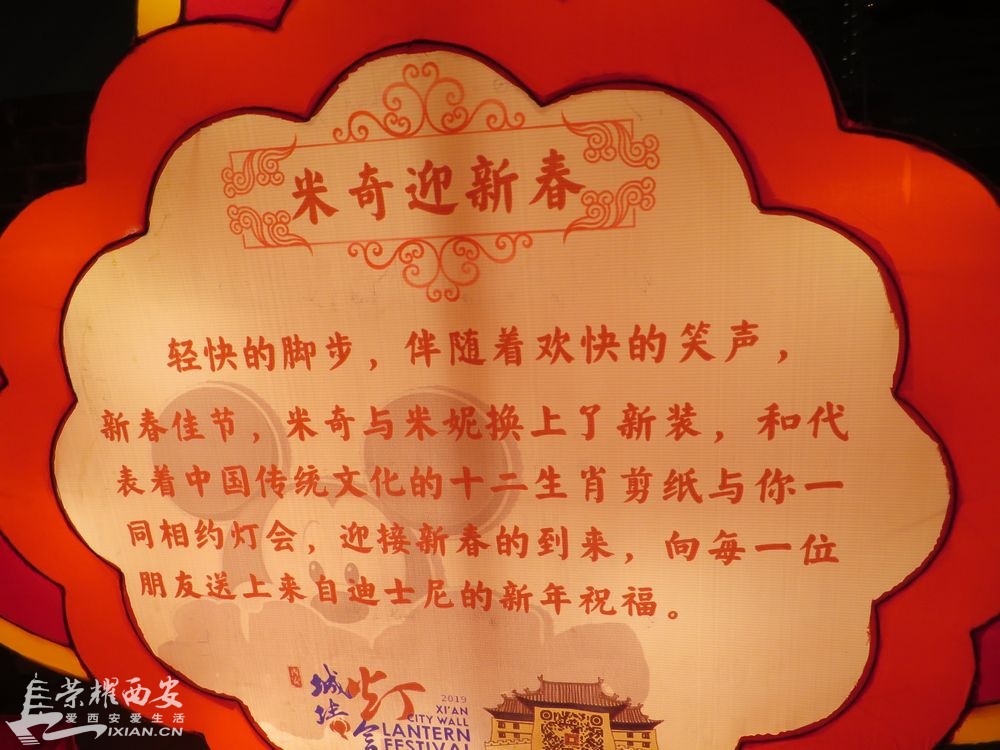 米奇迎新春
轻快的脚步，伴随着欢快的笑声，
新春佳节，米奇与米妮换上了新装，和代
表着中国传统文化的十二生肖剪纸与你一
同相约灯会，迎接新春的到来，向每一位
朋友送上来自迪士尼的新年祝福。
城墙灯会
2019
XI'AN
CITY WALL
LANTERN
FESTIVAL
荣耀西安
爱西安爱生活
IXIAN.CN